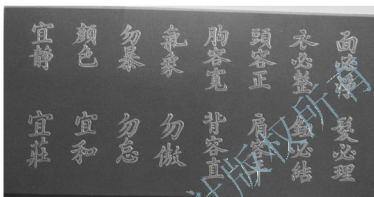 面必淨 髮必理
衣必整 鈕必結
頭容正 肩容平
胸容寬 背容直
氣象 勿傲
勿暴 勿怠
顏色 宜和
宜靜 宜莊
计版权所有